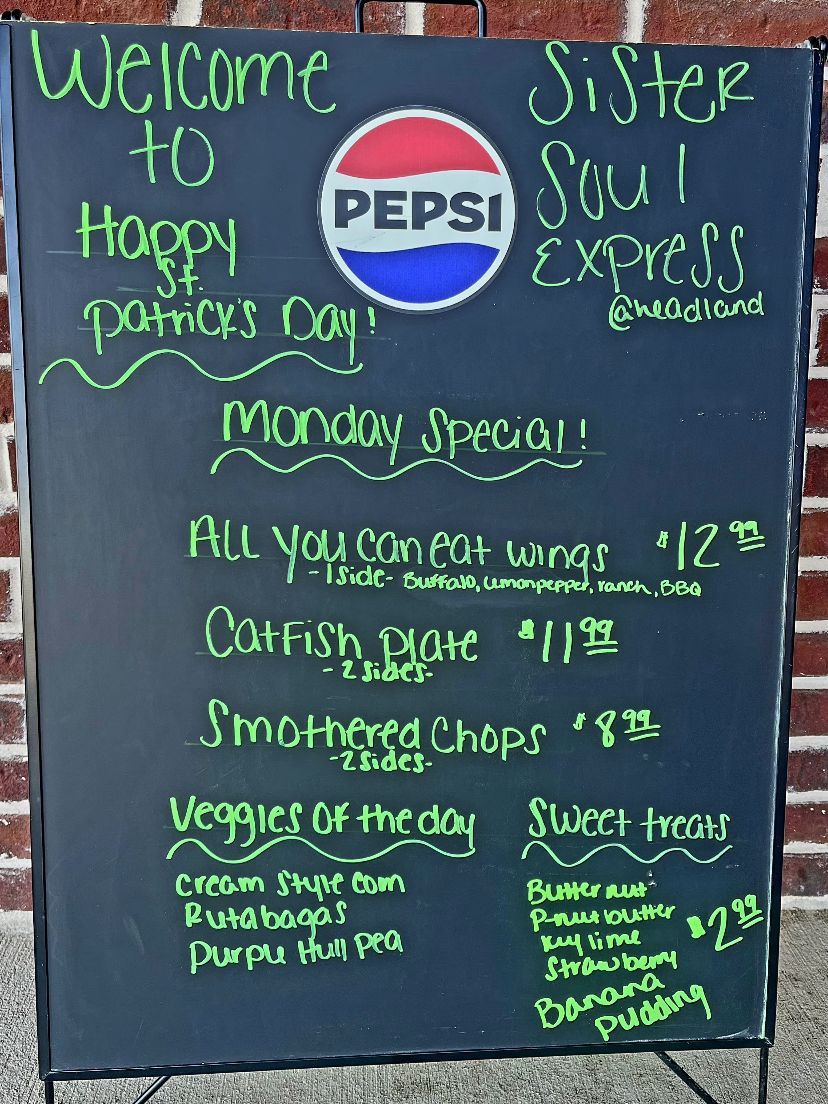 Welcome
to
Happy
St.
Patrick's Day!
PEPSI
Sister
Soul
Express
@headland
Monday Special!
All you can eat wings $12.99
-1 side- Buffalo, Lemonpepper, ranch, BBQ
Catfish plate $11.99
-2 sides-
Smothered Chops $8.99
-2 sides-
Veggies of the day
cream style corn
Rutabagas
Purple Hull pea
Sweet treats
Butternut
P-nut butter
key lime
Strawberry
Banana
pudding
$2.99